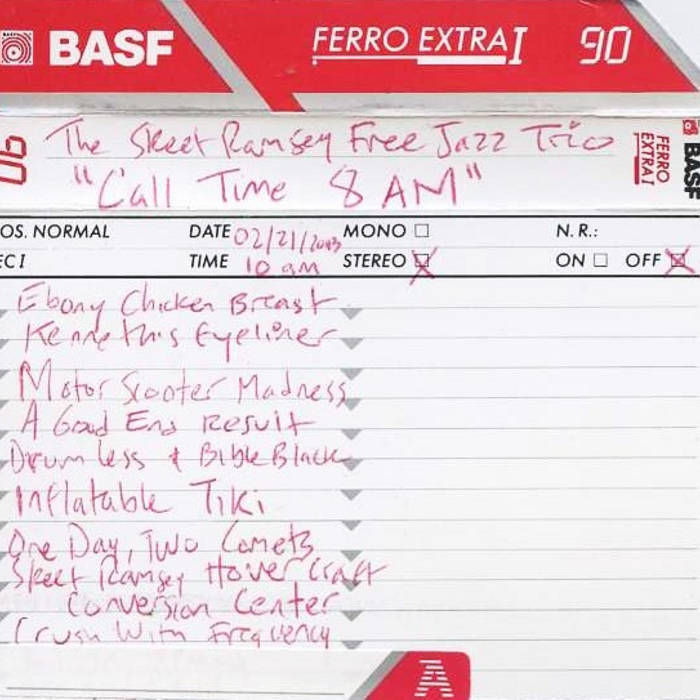 BASF FERRO EXTRA I 90
90 The Skeet Ramsey Free Jazz Trio
"Call Time 8 AM"
FERRO EXTRA I BASF
OS. NORMAL DATE 02/21/2013 MONO N.R.:
EC I TIME 10 am STEREO ON OFF
Ebony Chicken Breast
Kenneths Eyeliner
Motor Scooter Madness
A Good End Result
Drumless & Bible Black
Inflatable Tiki
One Day, Two Comets
Skeet Ramsey Hover Craft
Conversion Center
Crush With Frequency
A